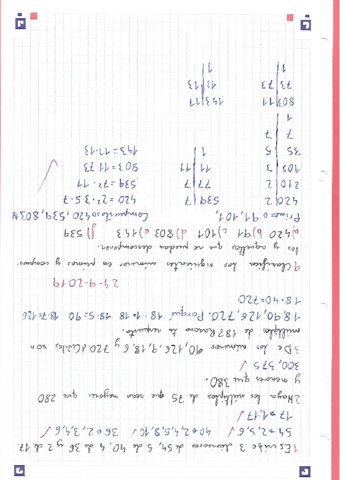 1 Escribe 3 divisores de 54, 5 de 40, 4 de 36 y 2 de 17.
54 → 2, 3, 6 40 → 2, 4, 5, 8, 10 36 → 2, 3, 4, 6
17 → 1, 17
2 Haya los multiplos de 75 que sean mayores que 280
y menores que 380.
300, 375
3 De los números 90, 126, 9, 18, 6 y 720 ¿Cuáles son
múltiplos de 18? Razona la respuesta.
18, 90, 126, 720. Porque 18·1=18 18·5=90 18·7=126
18·40=720
24-9-2019
4 Clasifica los siguientes números en primos y compuestos
y aquellos que se puedan descomponer.
a) 420 b) 91 c) 101 d) 803 e) 143 f) 539
Primos → 91, 101, Compuestos → 420, 539, 803,
420 2 539 7 420=2²·3·5·7
210 2 77 7 539=7²·11
105 3 11 11 803=11·73
35 5 1 143=11·13
7 7
1
803 11 143 11
73 73 13 13
1 1